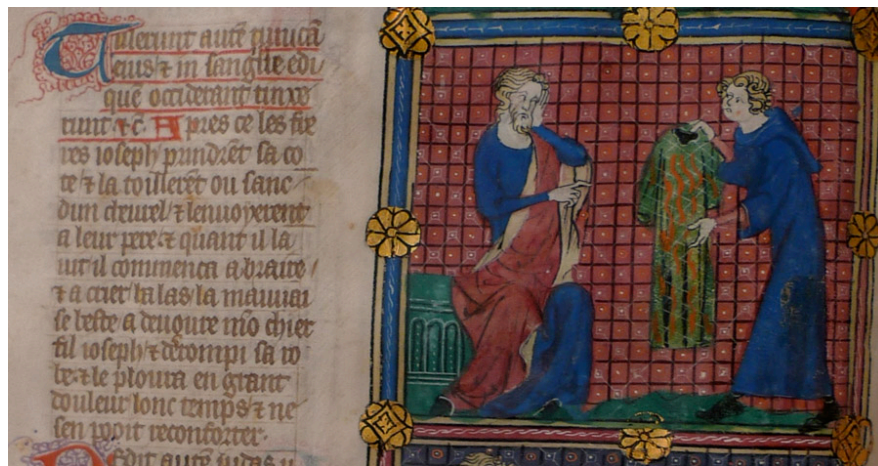 Tulerunt autē tunicā
eius ⁊ in sanguīe edi
quē occiderant tinxe
runt ⁊c. Apres ce les fre
res ioseph prindrēt sa co
te ⁊ la toillerēt ou sanc
dun cheurel ⁊ lenuoyerent
a leur pere ⁊ quant il la
uit il commenca a braire /
⁊ a crier / la las / la mauuai
se beste a deuoure mō chier
fil ioseph / ⁊ derompi sa ro
be ⁊ le ploura en grant
douleur lonc temps ⁊ ne
sen pooit reconforter.
dit autē iudas